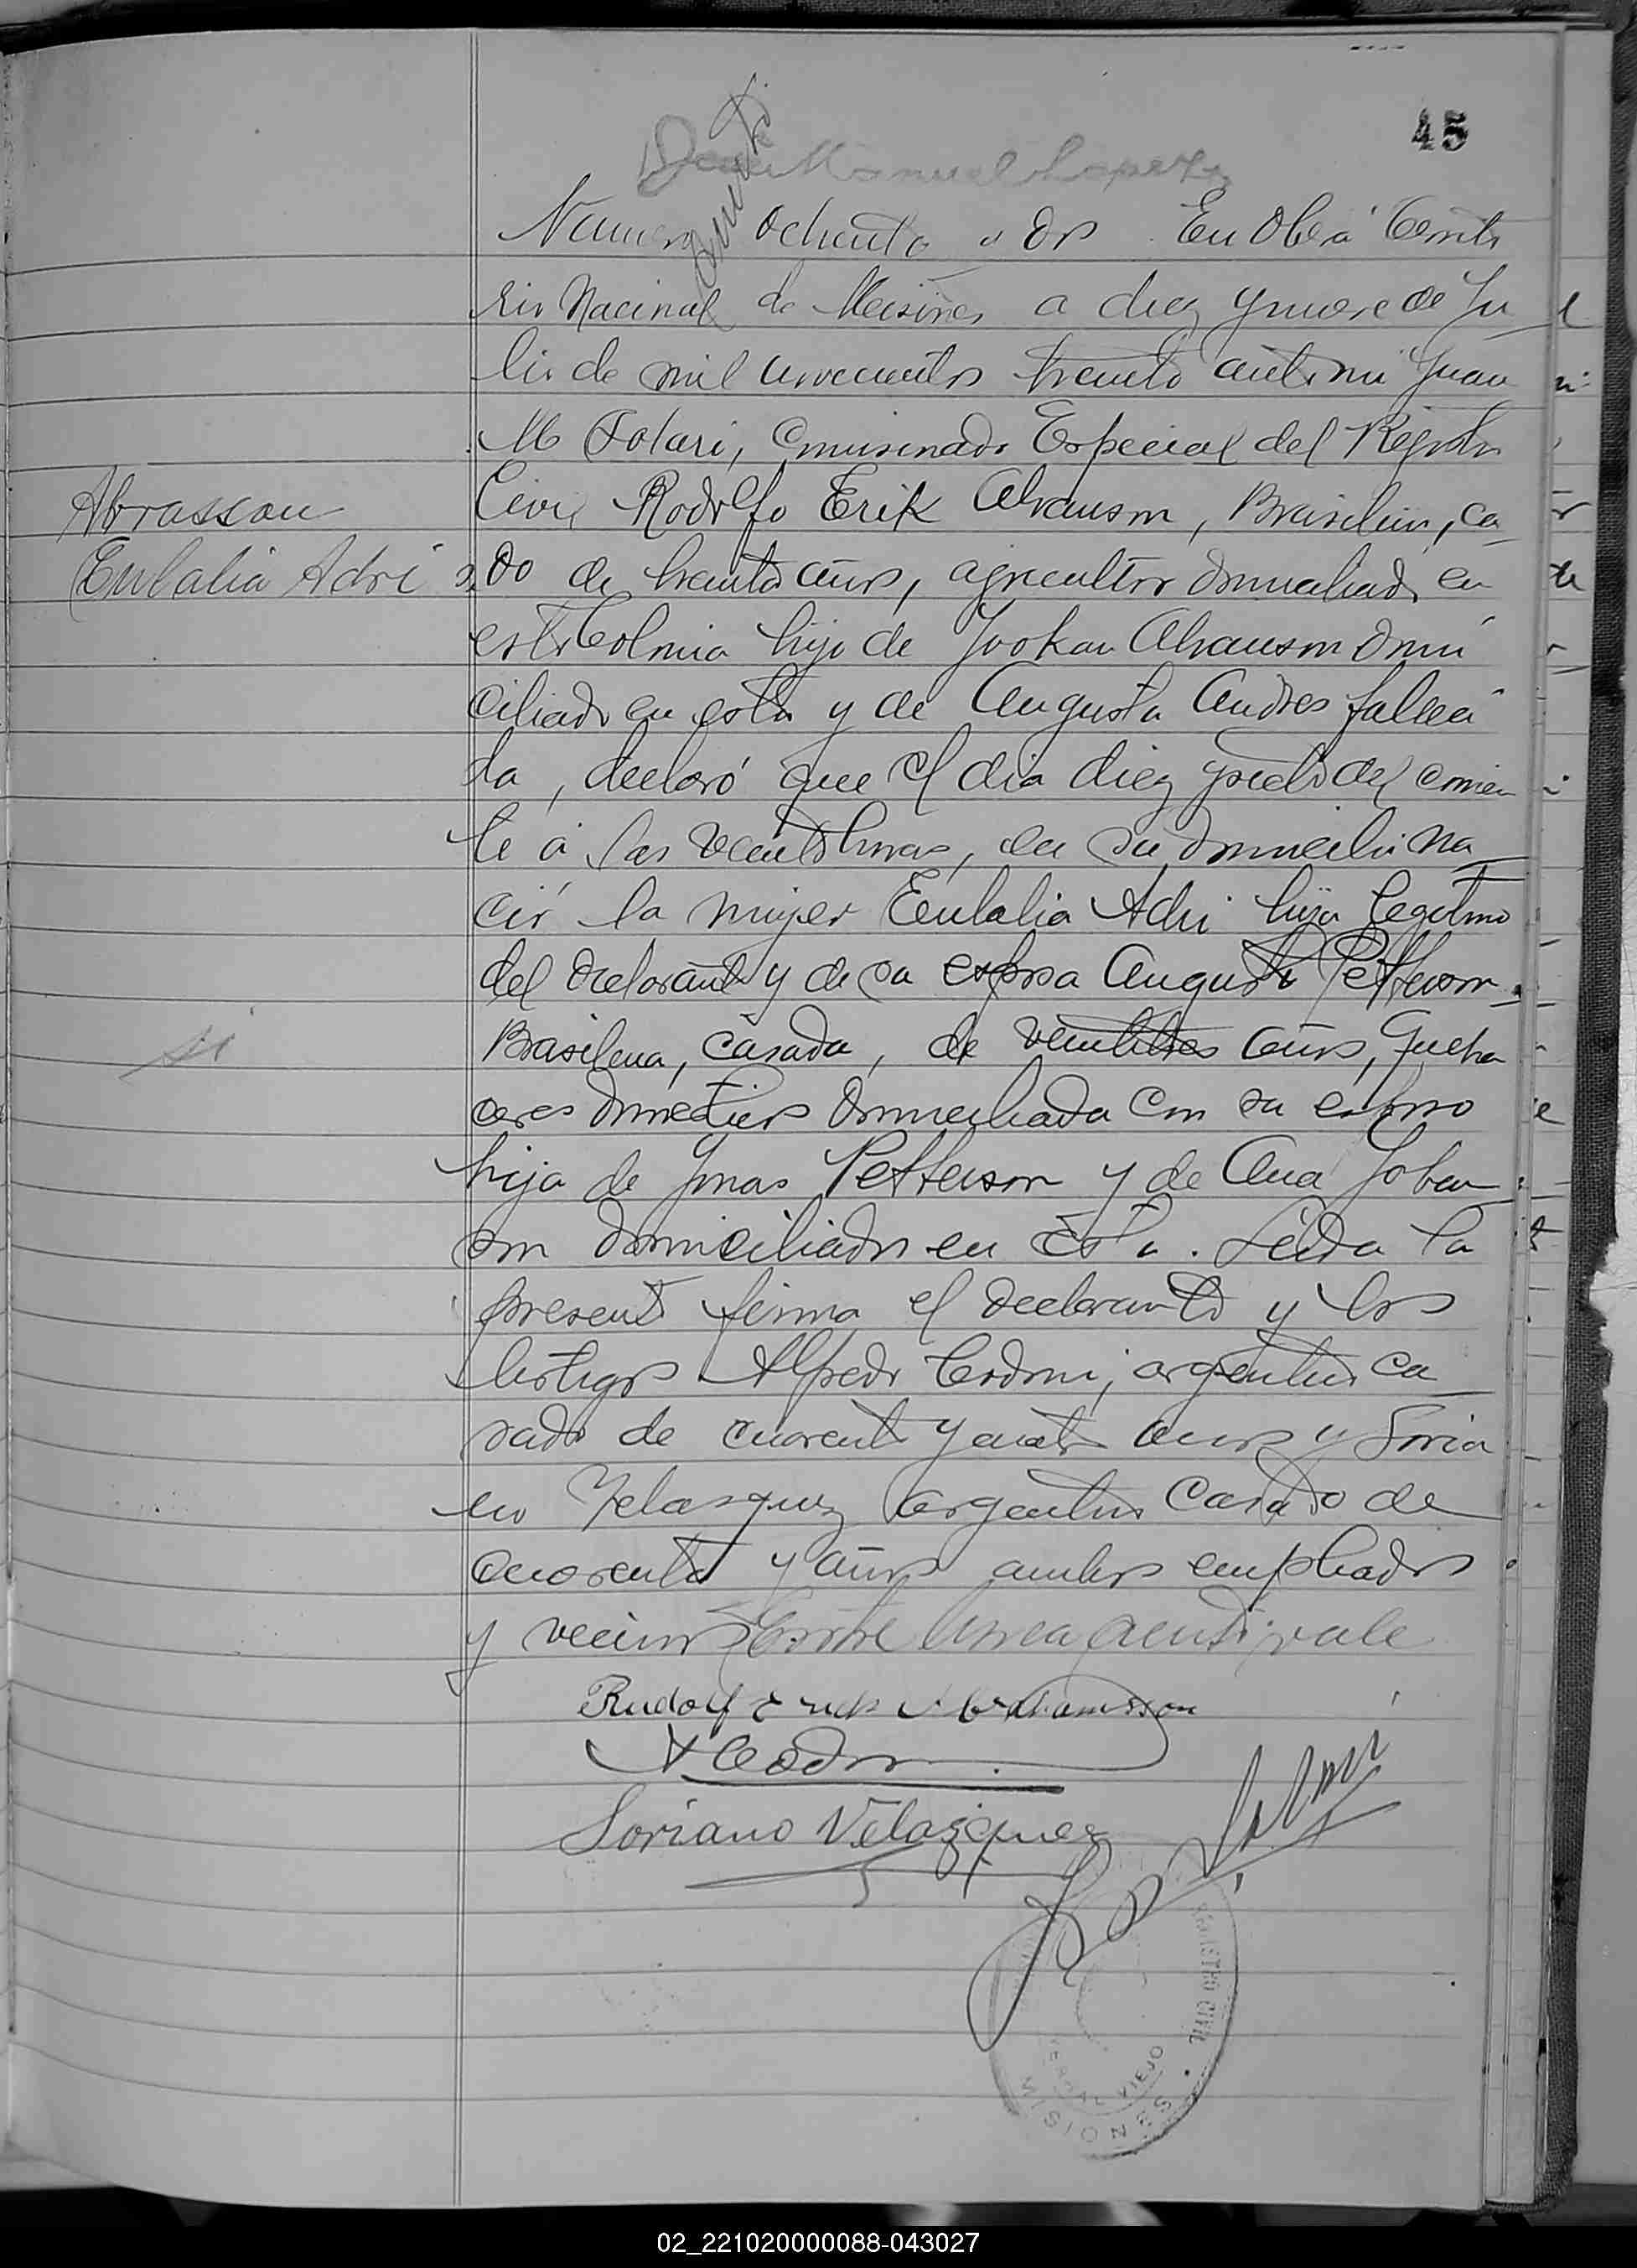 45
Manuel Lopez
Numero ochenta y dos En Oberá Territo
rio Nacional de Misiones a diez y nueve de Ju
lio de mil novecientos treinta ante mi Juan
M Solari, Comisionado Especial del Registro
Civil Rodolfo Erik Abrauson, Brasilero, ca
Abrasson
Eulalia Adri
do de treinta años, agricultor domiciliado en
esta Colonia hijo de Jookan Abrauson domi
ciliado en esta y de Augusta Andres falleci
da, declaró que el dia diez y siete del corrien
te á las veinte horas, en su domicilio na
ció la mujer Eulalia Adri hija legitima
del declarante y de su esposa Augusta Petterson
Brasilena, casada, de veintitres años, queha
si
ceres domesticos domiciliada con su esposo
hija de Jonas Petterson y de Ana Johan
son domiciliados en esta. Leida la
presente firma el declarante y los
testigos Alfredo Codoni, argentino ca
sado de cuarenta y cuatro años y Soria
no Velasquez argentino casado de
cuarenta y años ambos empleados
y vecinos Entre linea vale
Rudolf Erik Abrahamsson
A Codoni
Soriano Velazquez
REGISTRO CIVIL
YERBAL VIEJO
MISIONES
02_221020000088-043027